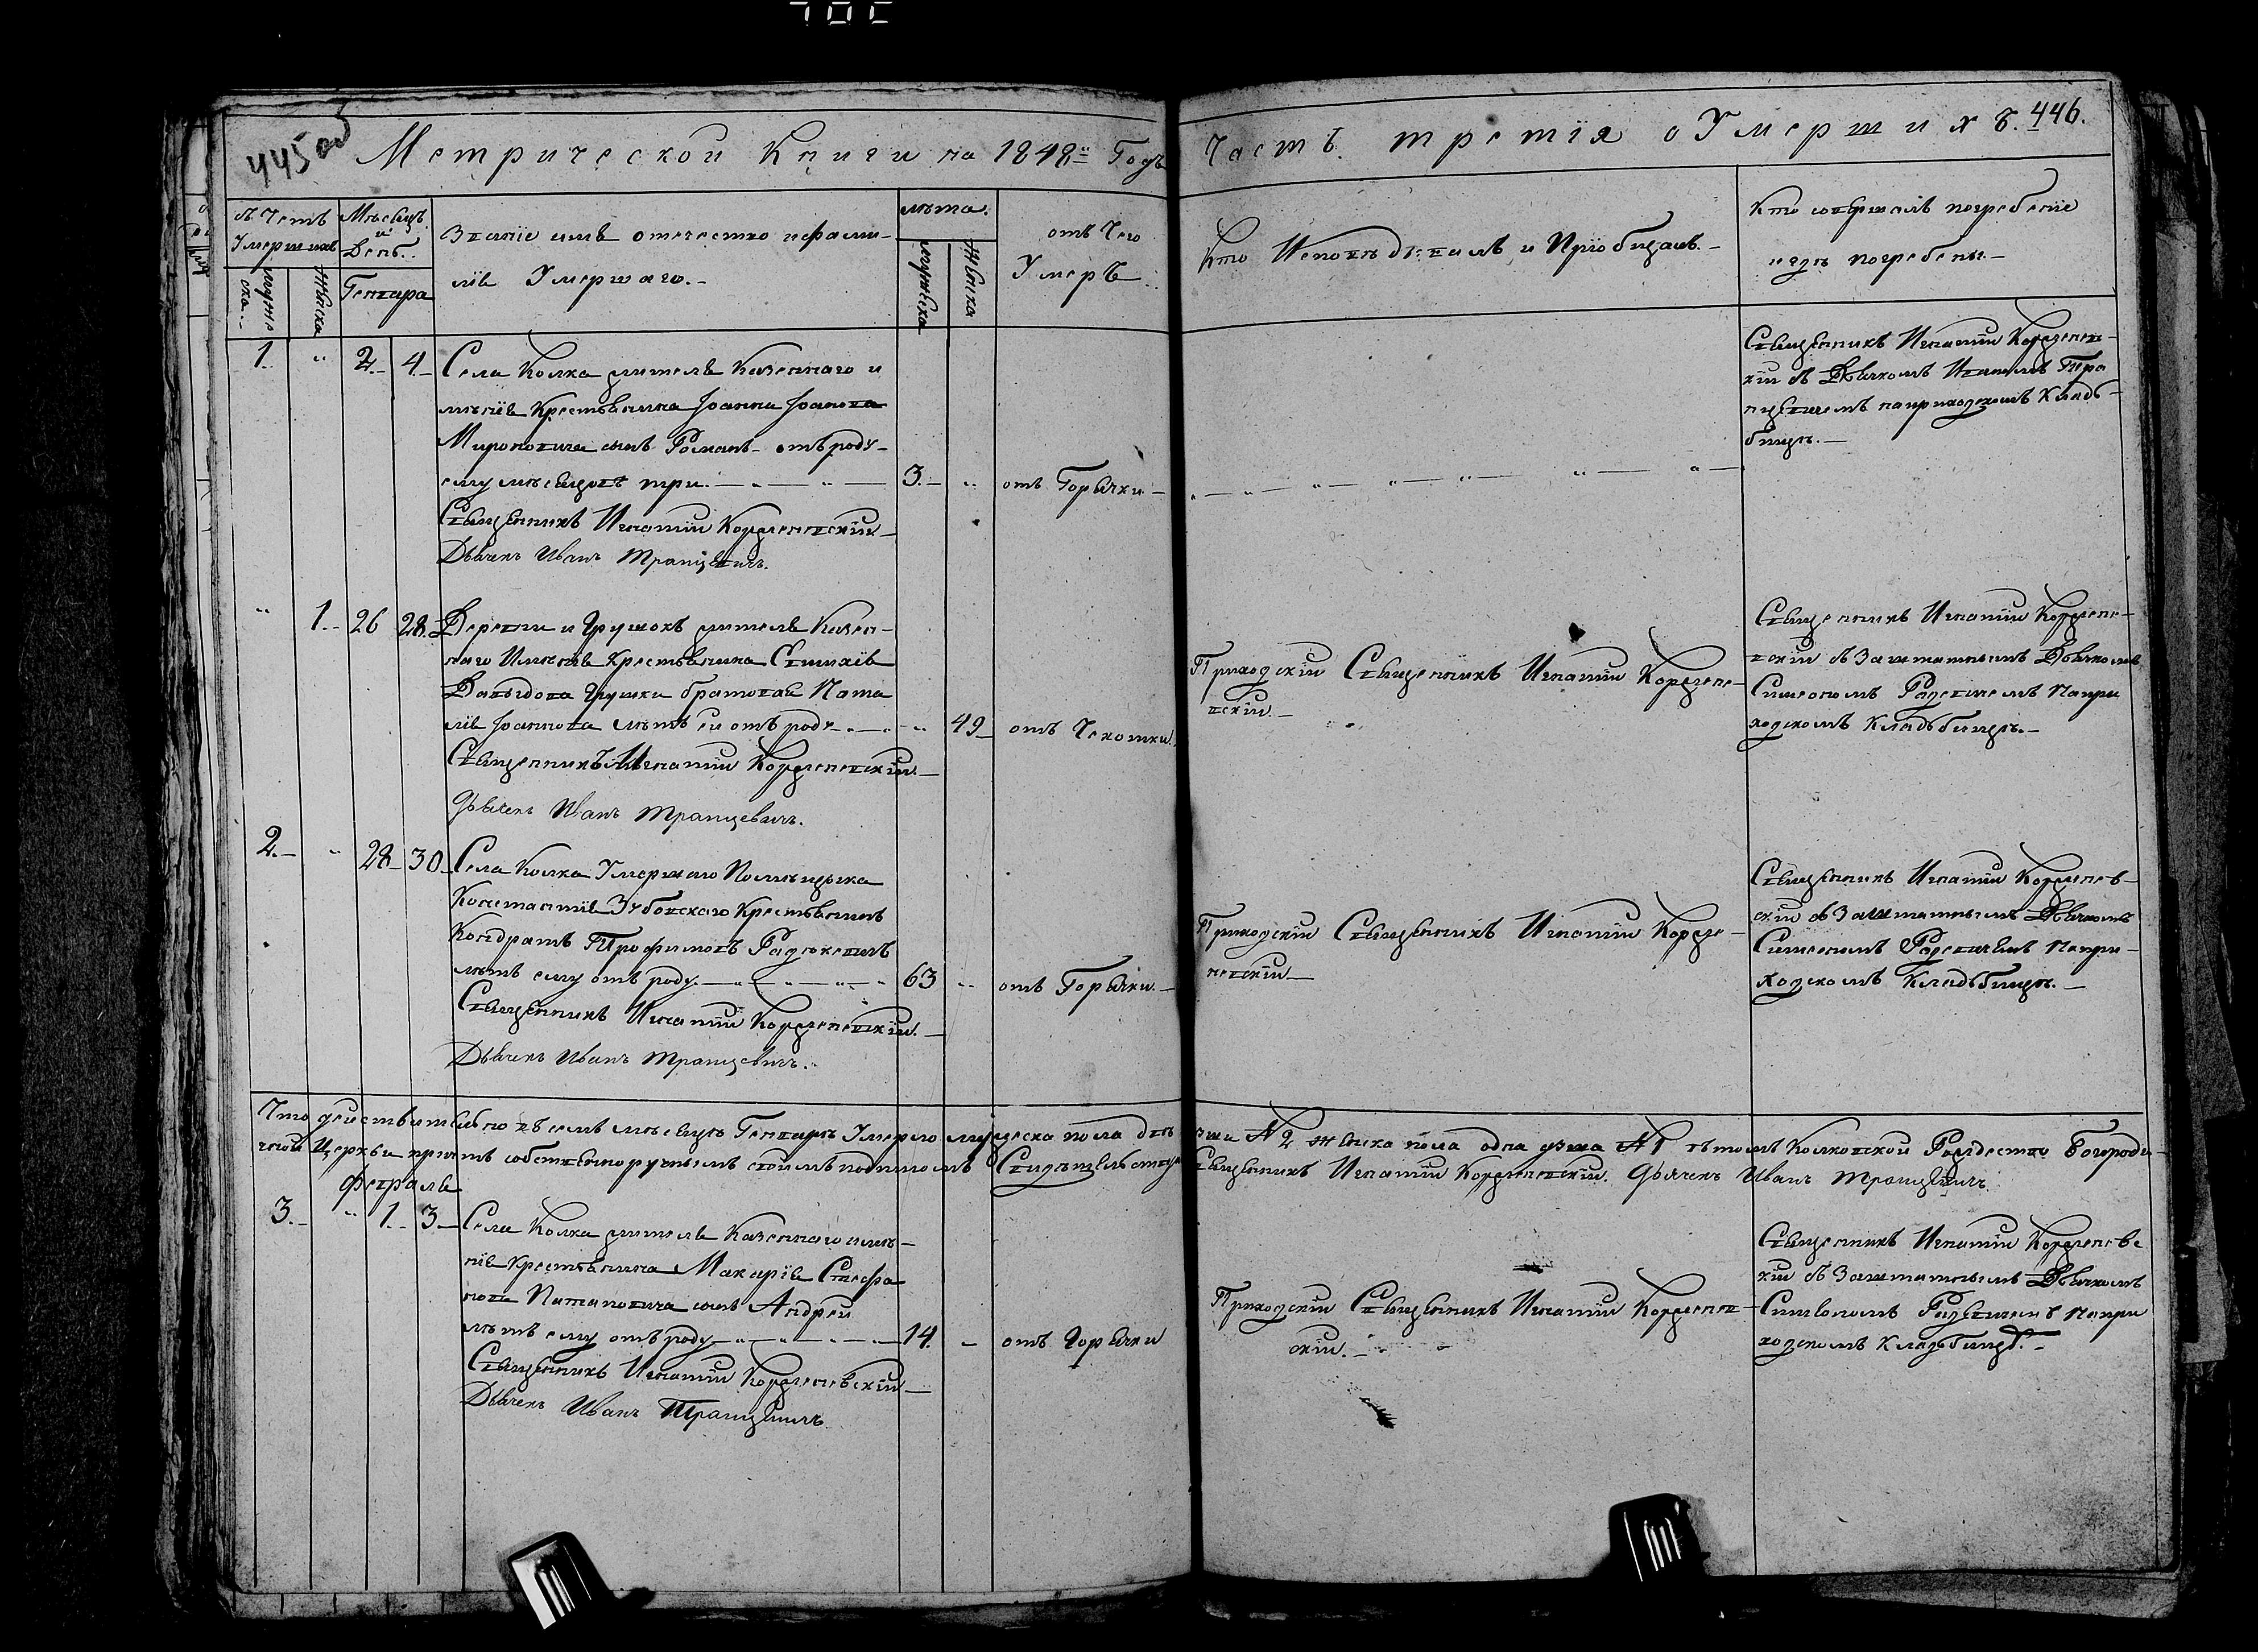 445 об
Метрической Книги на 1848й Годъ
Часть третїя о Умершихъ.
446.
Счетъ Умершихъ
Мужеска.
Женска
Мѣсяцъ и День.
Генвара
Званїе имя отечество и фамилїя Умершаго.
лѣта.
мужеска
Женска
отъ Чего Умеръ
Кто Исповѣдывалъ и Прїобщалъ.
Кто совершалъ погребенїе и гдѣ погребены.
1. " 2. 4. Села Колка жителя Казеннаго и
мѣнїя Крестьянина Іоанна Іоанова
Мироновича сынъ Романъ отъ роду
ему мѣсяцовъ три. 3. " отъ Горячки
Священникъ Игнатїй Корженевскїй
Дьячекъ Иванъ Транцевичъ.
Священникъ Игнатїй Корженев-
кїй съ Дьячкомъ Иваномъ Тра
нцевичемъ на приходскомъ Кладь-
бищѣ.
" 1. 26 28. Деревни Грушокъ жителя Казен-
наго Имѣнїя Крестьянина
Давыдова Грушки братовая Ната
лїя Іоаннова лѣтъ ей отъ роду " 49 отъ Чехотки.
Священникъ Игнатїй Корженевскїй.
Дьячекъ Иванъ Транцевичъ.
Приходскїй Священникъ Игнатїй Коржене-
вскїй.
Священникъ Игнатїй Коржене-
вскїй съ Заштатнымъ Дьячкомъ
Симеономъ на при
ходскомъ Кладьбищѣ.
2. " 28 30 Села Колка Умершаго Помѣщика
Константїя Зубовскаго Крестьянинъ
Кондратъ Трофимовъ
лѣтъ ему отъ роду. 63 " отъ Горячки.
Священникъ Игнатїй Корженевскїй.
Дьячекъ Иванъ Транцевичъ.
Приходскїй Священникъ Игнатїй Корже-
невскїй
Священникъ Игнатїй Корженев-
скїй съ Заштатнымъ Дьячкомъ
Симеономъ на при-
ходскомъ Кладьбищѣ.
Что действительно въ семъ мѣсяцѣ Генварѣ Умерло мужеска пола двѣ души № 2 женска пола одна душа № 1 въ томъ Колковской Рождество Богороди-
чной Церкви притъ собственоручнымъ своимъ подписомъ Свидѣтельствуемъ Священникъ Игнатїй Корженевскїй. Дьячекъ Иванъ Транцевичъ.
Февраля
3. " 1. 3 Села Колка жителя Казеннаго имѣ-
нїя Крестьянина Макарїя Стефа
нова сынъ Андрей
лѣтъ ему отъ роду 14. отъ Горячки
Священникъ Игнатїй Корженевскїй
Дьячекъ Иванъ Транцевичъ.
Приходскїй Священникъ Игнатїй Корженев-
скїй.
Священникъ Игнатїй Корженевс
кїй съ Заштатнымъ Дьячкомъ
Симеономъ на при
ходскомъ Кладьбищѣ.